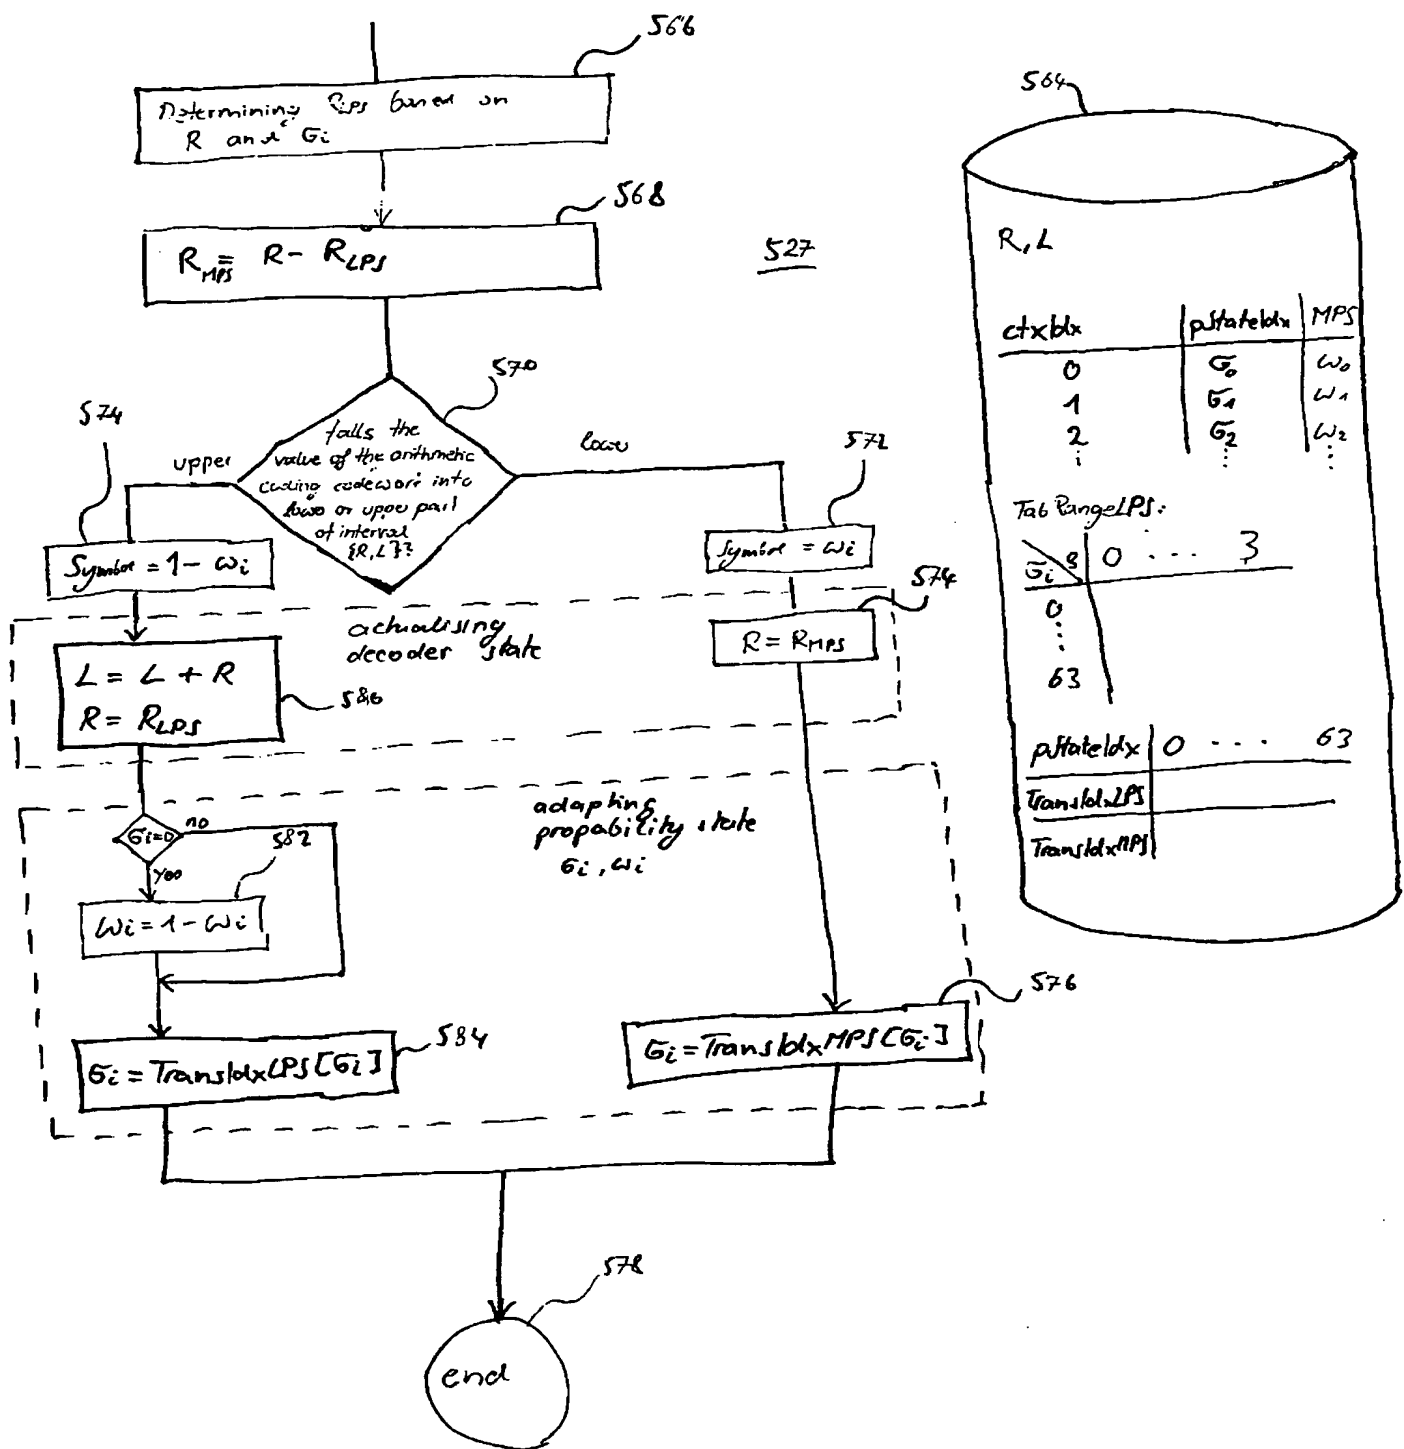 566
Determining RLPS based on
R and σi
568
RMPS = R - RLPS
527
570
falls the
value of the arithmetic
coding codeword into
lower or upper part
of interval
{R,L}?
upper
lower
574
572
Symbol = 1 - ωi
Symbol = ωi
574
actualising
decoder state
L = L + R
R = RLPS
580
R = RMPS
adapting
propability state
σi, ωi
σi=0
no
yes
582
ωi = 1 - ωi
584
σi = TransIdxLPS[σi]
576
σi = TransIdxMPS[σi]
578
end
564
R, L
ctxIdx pStateIdx MPS
0 σ0 ω0
1 σ1 ω1
2 σ2 ω2
⋮ ⋮ ⋮
TabRangeLPS:
σi g 0 ... 3
0
⋮
63
pStateIdx 0 ... 63
TransIdxLPS
TransIdxMPS